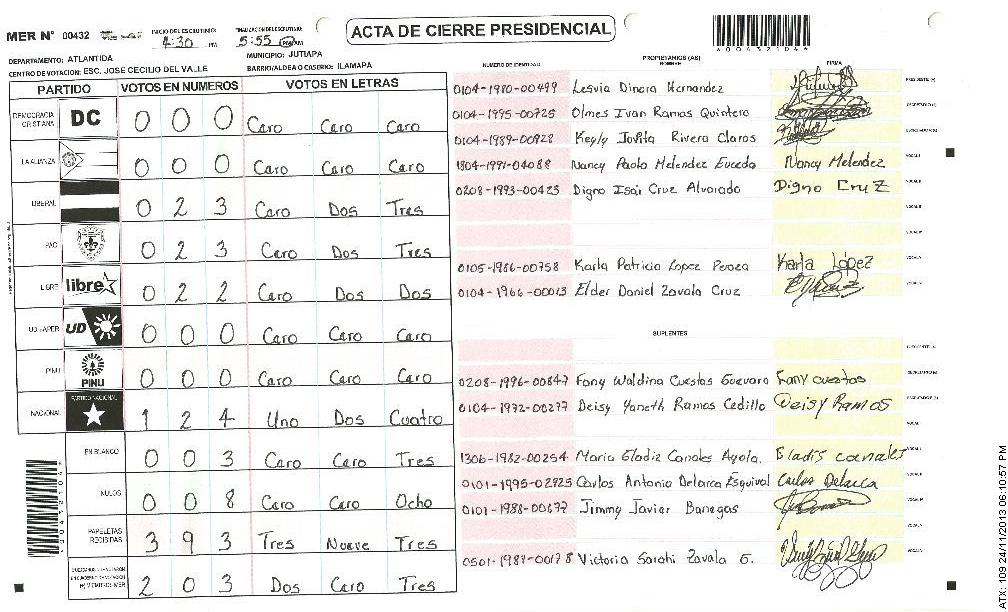 MER N° 00432
INICIO DEL ESCRUTINIO:
4:30 PM
FINALIZACION DEL ESCRUTINIO:
5:55 PM
ACTA DE CIERRE PRESIDENCIAL
DEPARTAMENTO: ATLANTIDA
MUNICIPIO: JUTIAPA
CENTRO DE VOTACION: ESC. JOSE CECILIO DEL VALLE
BARRIO/ALDEA O CASERIO: ILAMAPA
PARTIDO VOTOS EN NUMEROS VOTOS EN LETRAS
DEMOCRACIA CRISTIANA DC 0 0 0 Caro Caro Caro
LA ALIANZA 0 0 0 Caro Caro Caro
LIBERAL 0 2 3 Caro Dos Tres
PAC 0 2 3 Caro Dos Tres
LIBRE libre 0 2 2 Caro Dos Dos
UD-FAPER UD 0 0 0 Caro Caro Caro
PINU PINU 0 0 0 Caro Caro Caro
NACIONAL PARTIDO NACIONAL 1 2 4 Uno Dos Cuatro
EN BLANCO 0 0 3 Caro Caro Tres
NULOS 0 0 8 Caro Caro Ocho
PAPELETAS RECIBIDAS 3 9 3 Tres Nueve Tres
2 0 3 Dos Caro Tres
NUMERO DE IDENTIDAD PROPIETARIOS (AS) NOMBRE FIRMA
0104-1980-00499 Lesvia Dinora Hernandez
0104-1995-00725 Olmes Ivan Ramos Quintero
0104-1989-00928 Keyly Jovita Rivera Claros
1804-1991-04088 Nancy Paola Melendez Euceda Nancy Melendez
0208-1993-00423 Digno Isai Cruz Alvarado Digno Cruz
0105-1986-00758 Karla Patricia Lopez Peraza Karla Lopez
0104-1966-00013 Elder Daniel Zavala Cruz
SUPLENTES
0208-1996-00847 Fany Waldina Cuestas Guevara Fany cuestas
0104-1972-00277 Deisy Yaneth Ramos Cedillo Deisy Ramos
1306-1982-00254 Maria Gladiz Canales Ayala. Gladis canales
0101-1995-02925 Carlos Antonio Delarca Esquival Carlos Delarca
0101-1988-00677 Jimmy Javier Banegas
0501-1987-00178 Victoria Sarahi Zavala G.
ATX: 109 24/11/2013 06:10:57 PM